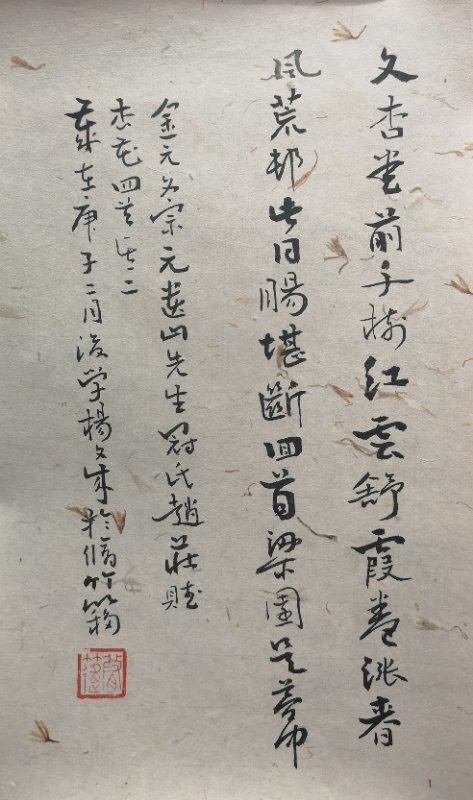 文杏堂前千樹紅雲舒霞卷漲春
風荒邨此日腸堪斷回首梁園是夢中
金元文宗元遺山先生冠氏趙莊賦
杏花四首其二
歲在庚子二月後学楊文成於脩竹簃